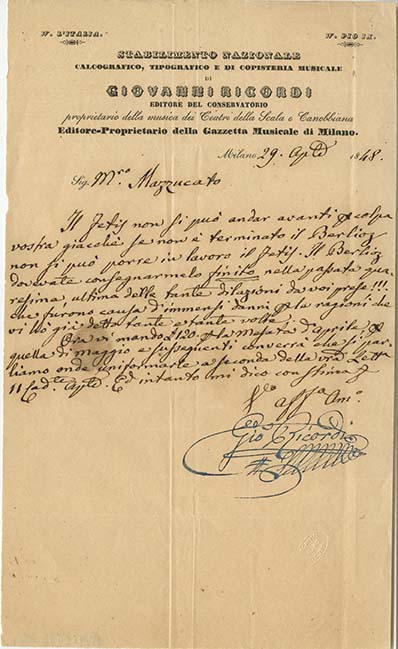 W. L'ITALIA.
W. PIO IX.
STABILIMENTO NAZIONALE
CALCOGRAFICO, TIPOGRAFICO E DI COPISTERIA MUSICALE
DI
GIOVANNI RICORDI
EDITORE DEL CONSERVATORIO
proprietario della musica dei Teatri della Scala e Canobbiana
Editore-Proprietario della Gazzetta Musicale di Milano.
Milano 29. Aple 1848.
Sig. Mro Mazzucato
Il Fetis non si può andar avanti p colpa
vostra giacchè se non è terminato il Berlioz
non si può porre in lavoro il Fetis. Il Berlioz
dovevate consegnarmelo finito nella passata qua-
resima, ultima delle tante dilazioni da voi prese!!!.
che furono causa d'immensi danni p le ragioni che
vi ho già detto tante e tante volte.
Ora vi mando 120. p la Mesata d'Aprile, p
quella di maggio e susseguenti converrà che si par-
liamo onde uniformarle a seconda della Lettа
11 Cadte Aple. Ed intanto mi dico con stima
affma Amo.
Gio Ricordi